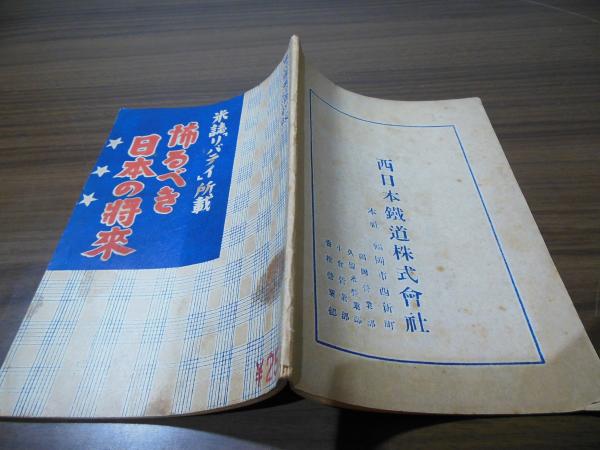 米誌「リバティ」所載
怖るべき
日本の將來
¥2
西日本鐵道株式會社
本社 福岡市西新町
福岡營業部
久留米營業部
小倉營業部
香椎營業部